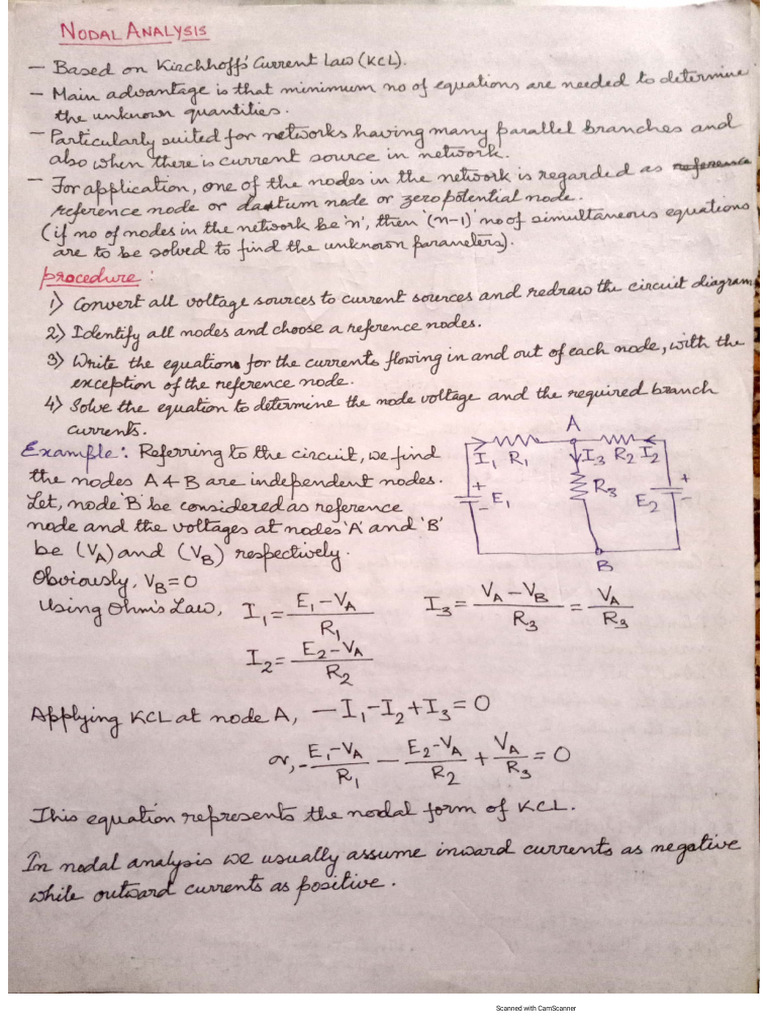 NODAL ANALYSIS
- Based on Kirchhoff's Current Law (KCL).
- Main advantage is that minimum no of equations are needed to determine
the unknown quantities.
- Particularly suited for networks having many parallel branches and
also when there is current source in network.
- For application, one of the nodes in the network is regarded as reference
reference node or datum node or zero potential node.
(if no of nodes in the network be 'n', then '(n-1)' no of simultaneous equations
are to be solved to find the unknown parameters).
procedure:
1) Convert all voltage sources to current sources and redraw the circuit diagram
2) Identify all nodes and choose a reference nodes.
3) Write the equations for the currents flowing in and out of each node, with the
exception of the reference node.
4) Solve the equation to determine the node voltage and the required branch
currents.
Example: Referring to the circuit, we find
the nodes A & B are independent nodes.
Let, node 'B' be considered as reference
node and the voltages at nodes 'A' and 'B'
be (VA) and (VB) respectively.
A
I1 R1 I3 R2 I2
+ R3 +
- E1 E2 -
B
Obviously, VB = 0
Using Ohm's Law, I1 = (E1-VA)/R1 I3 = (VA-VB)/R3 = VA/R3
I2 = (E2-VA)/R2
Applying KCL at node A, -I1-I2+I3=0
or, -(E1-VA)/R1 - (E2-VA)/R2 + VA/R3 = 0
This equation represents the nodal form of KCL.
In nodal analysis we usually assume inward currents as negative
while outward currents as positive.
Scanned with CamScanner